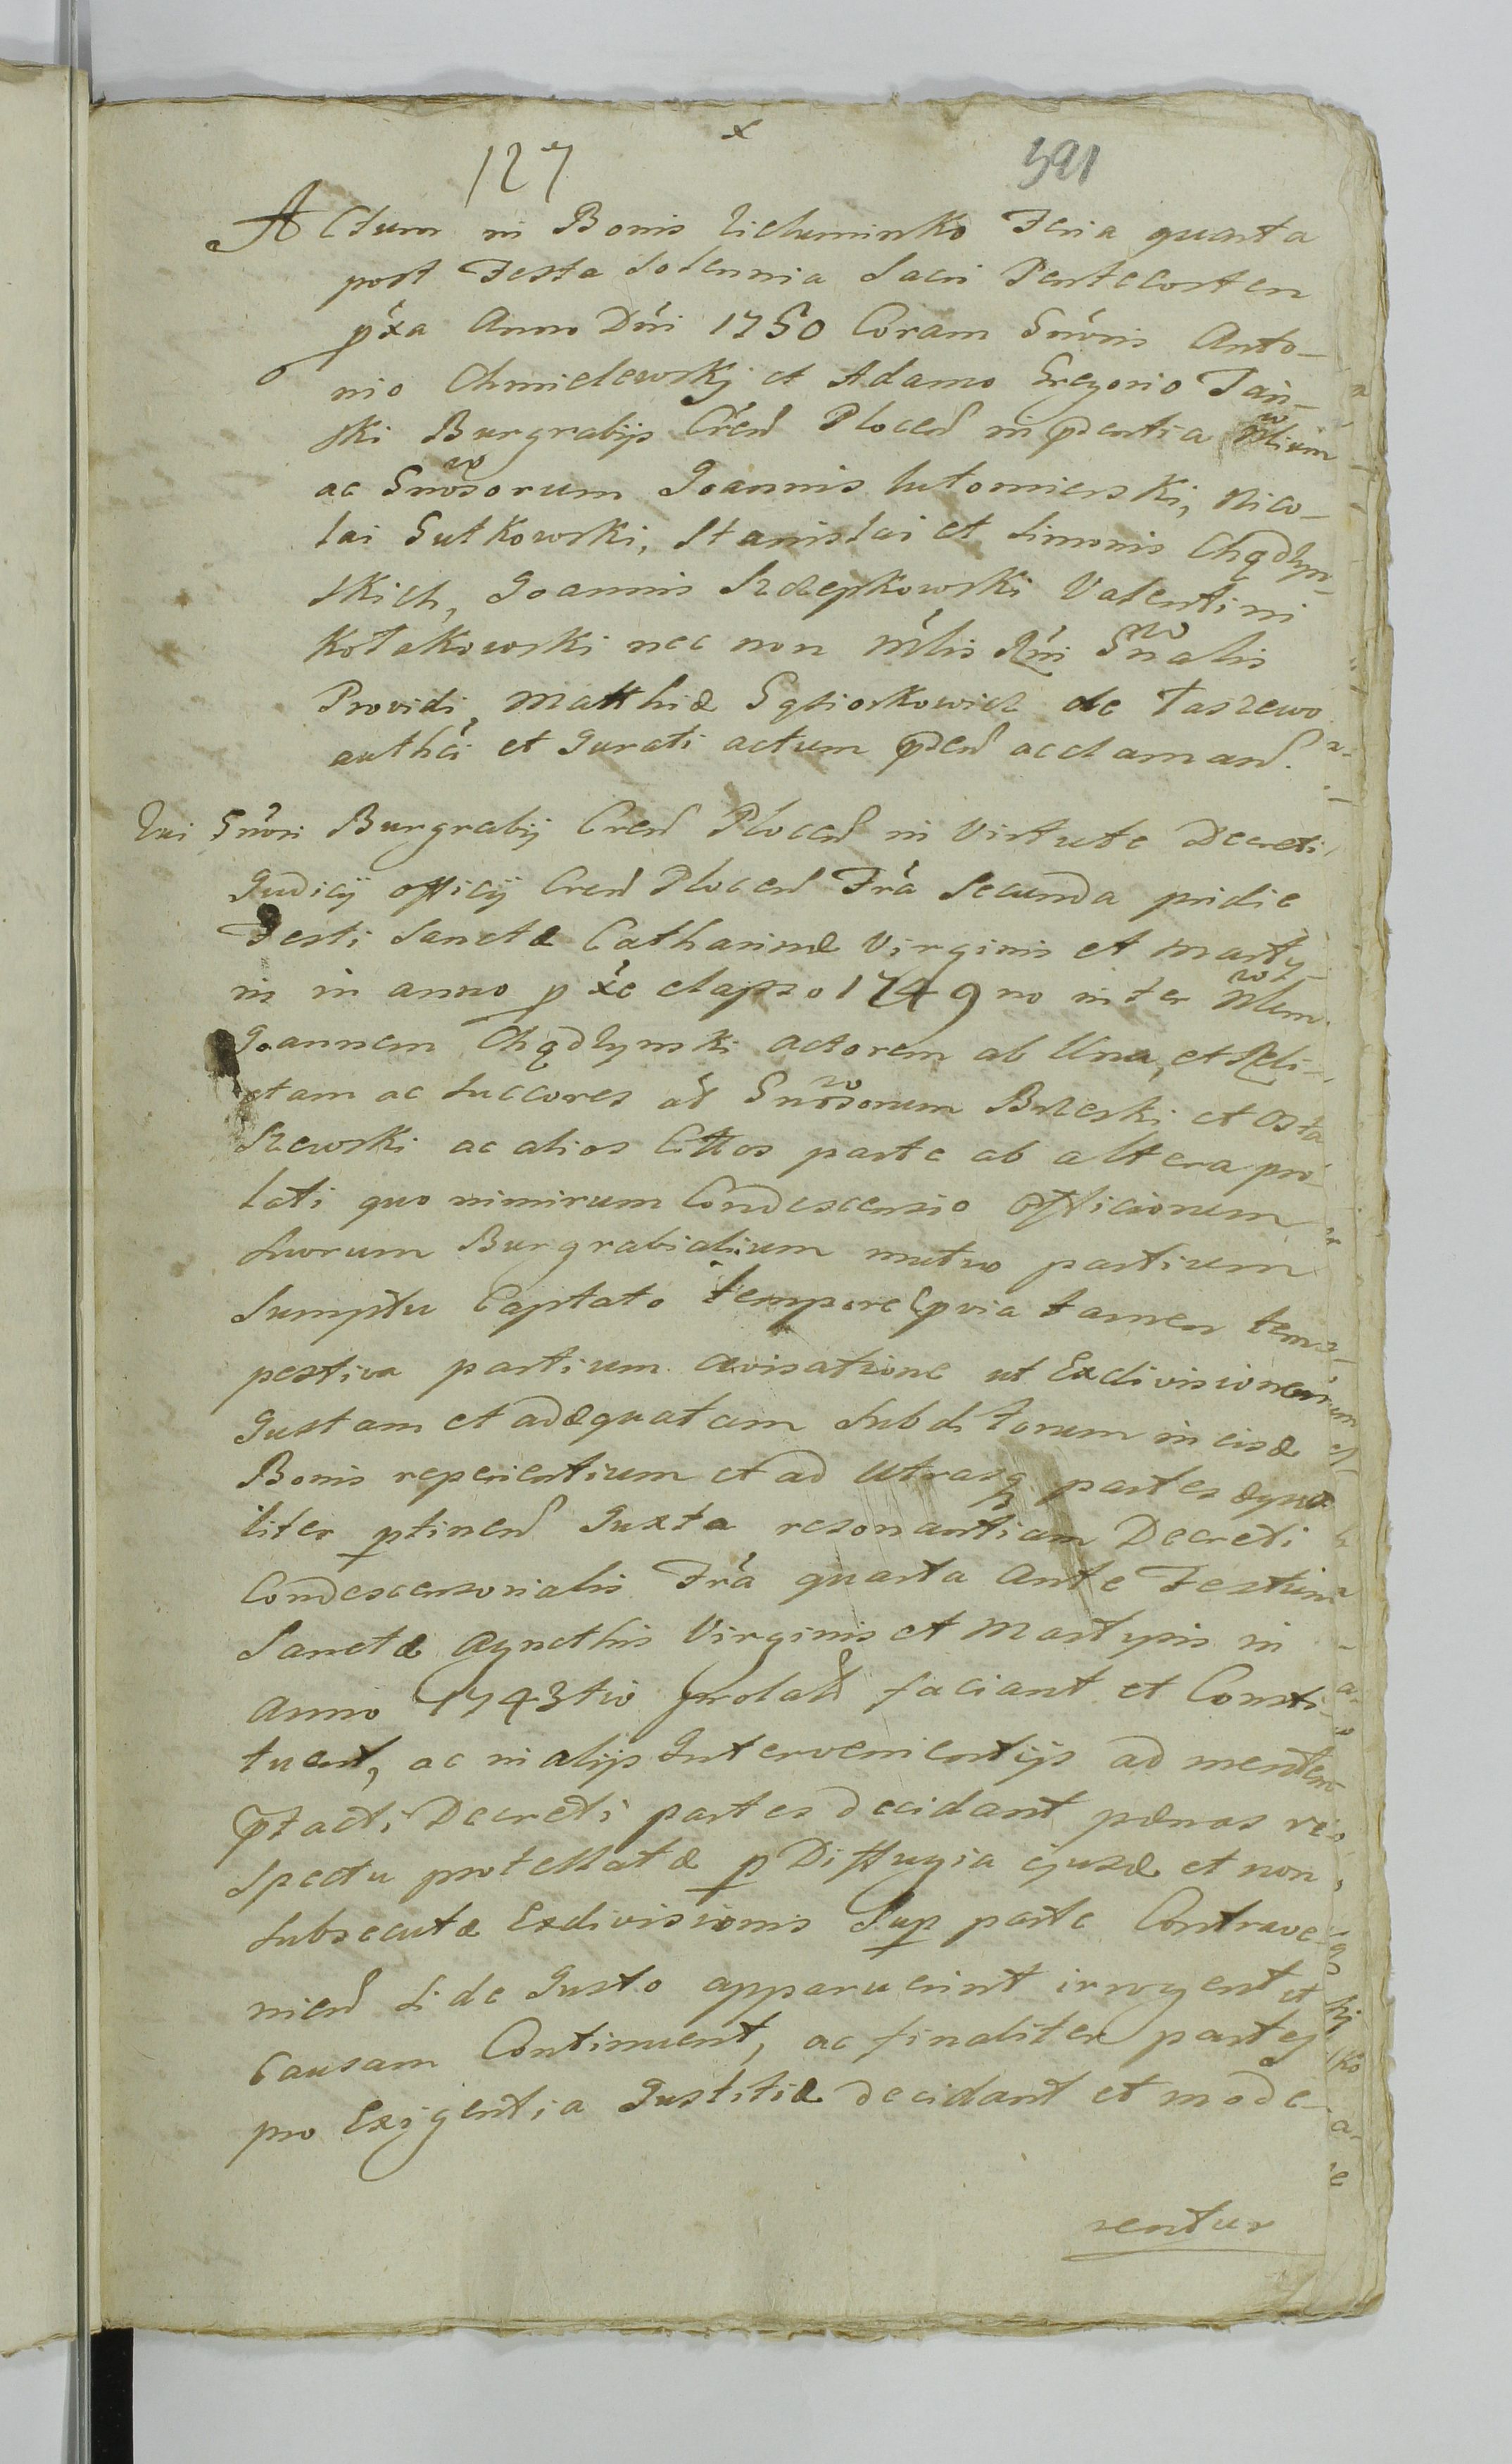 x
127 591
Actum in Bonis Ziełuminsko Feria quarta
post Festa Solennia Sacri Pentecosten
pxa Anno Dni 1750 Coram Gnosis Anto-
nio Chmielewskj et Adamo Gregorio Tań-
ski Burgrabijs Cren Plocen in pntia Mlium
ac Gnosorum Joannis Lutomierski, Nico-
lai Gutkowski, Stanislai et Simonis Chądzyn-
skich, Joannis Szczepkowski Valentini
Kołakowski nec non Mlis Rni Gnalis
Providi Matthiæ Gąsiorkowicz de Taszewo
authci et Jurati actum pnden acclaman.
Qui Gnosi Burgrabij Cren Plocen in Virtute Decreti
Judicij officij Cren Plocen Fra Secunda pridie
Festi Sanctæ Catharinæ Virginis et Marty-
ris in anno pxe elapso 1749no inter Mlem
Joannem Chądzynski actorem ab Una, et Reli-
ctam ac Succores ad Gnosorum Brzeski et Osta
szewski ac alios Cittos parte ab altera pro-
lati quo nimirum Condescensio Officiorum
Suorum Burgrabialium mutuo partium
Sumptu Captato tempore pvia tamen tem-
pestiva partium avisatione ut Exdivisionem
Justam et adæquatam Subditorum in eisd
Bonis reperientium et ad Utrasq partes æqua
liter ptinen Juxta resonantiam Decreti
Condescensorialis Fra quarta Ante Festum
Sanctæ Agnethis Virginis et Martyris in
Anno 1743tio prolati faciant et Consti-
tuent, ac in alijs Intervenientijs ad mentem
ptacti Decreti partes decidant pænas re-
spectu protestatæ p Diffugia ejusd et non
Subsecutæ Exdivisionis Sup parte Contrave-
nien si de Justo apparuerint irrogent et
Causam Continuent, ac finaliter partes
pro Exigentia Justitiæ decidant et mode-
rentur